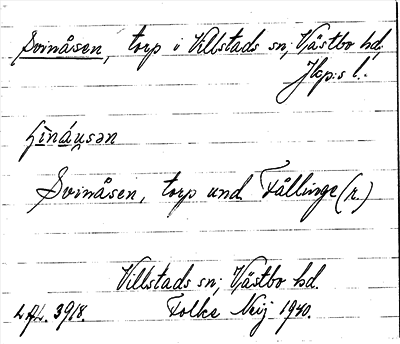 Svinåsen, torp i Villstads sn, Västbo hd,
Jkp:s l.
Svinåsen, torp und. Fållinge (r.)
Villstads sn, Västbo hd.
Folke Neij 1940.